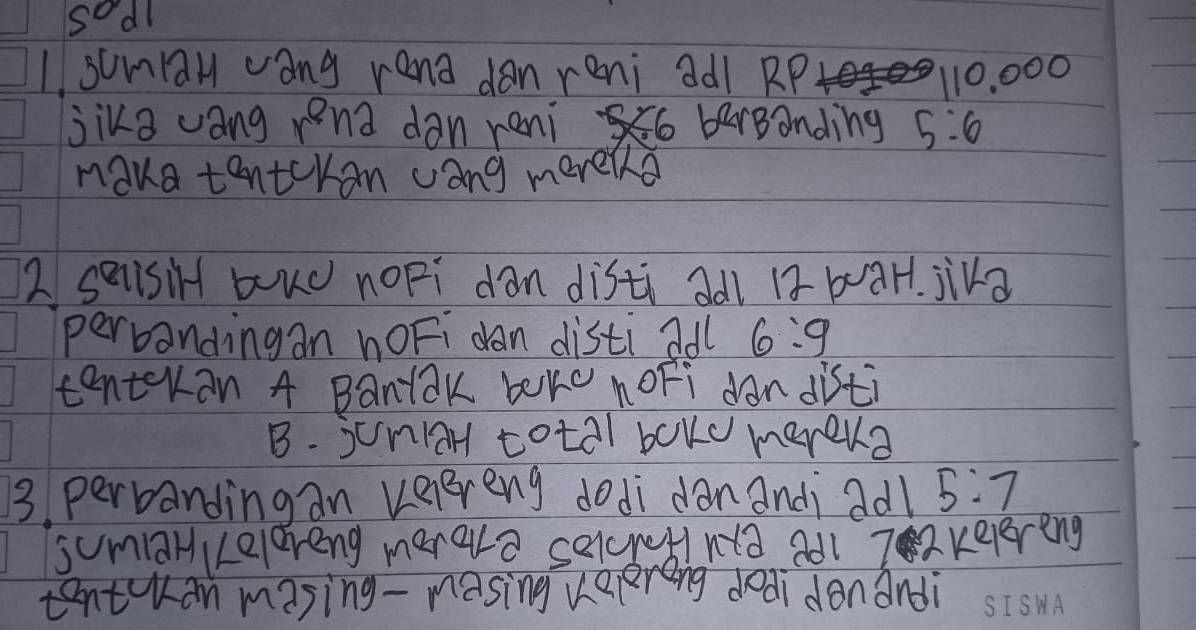 soal
1. jumlah uang rena dan reni adl RP 110.000
jika uang rena dan reni berbanding 5:6
maka tentukan uang mereka
2. selisih buku nofi dan disti adl 12 buah. jika
perbandingan nofi dan disti adl 6:9
tentukan A Banyak buku nofi dan disti
B. jumlah total buku mereka
3. perbandingan kelereng dodi dan andi adl 5:7
jumlah kelereng mereka seluruhnya adl 72 kelereng
tentukan masing-masing kelereng dodi dan andi
SISWA